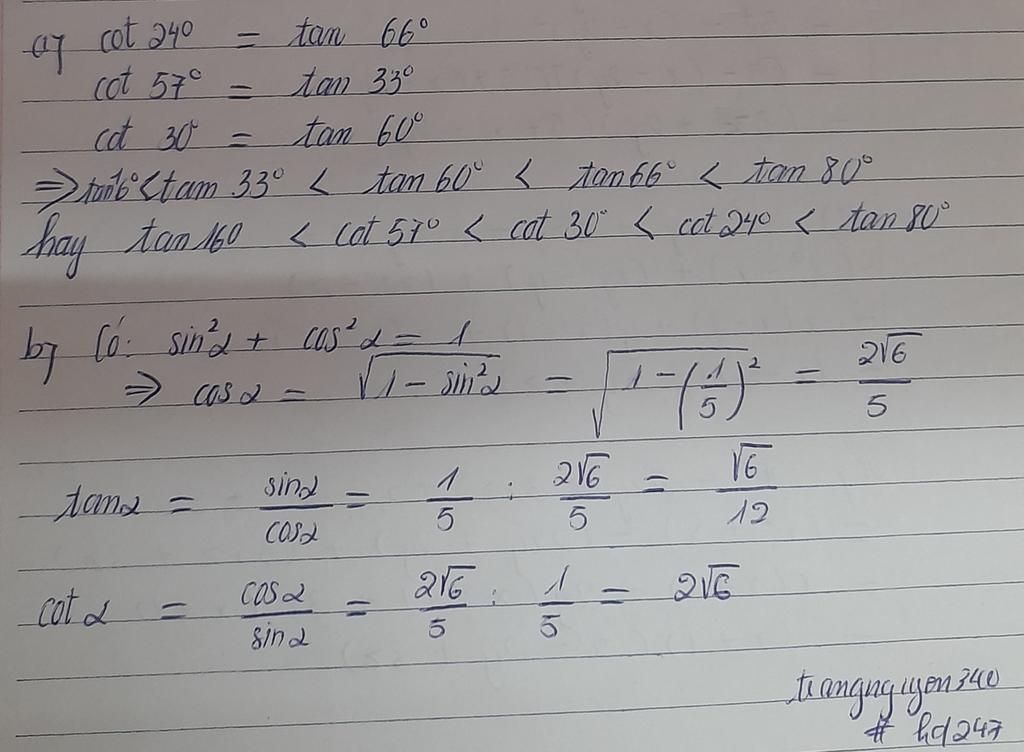 a) cot 24° = tan 66°
cot 57° = tan 33°
cot 30° = tan 60°
⇒ tan16° < tan 33° < tan 60° < tan 66° < tan 80°
hay tan 16° < cot 57° < cot 30° < cot 24° < tan 80°
b) Có: sin²α + cos²α = 1
⇒ cosα = √(1 - sin²α) = √(1 - (1/5)²) = 2√6/5
tanα = sinα/cosα = 1/5 : 2√6/5 = √6/12
cotα = cosα/sinα = 2√6/5 : 1/5 = 2√6
trangnguyen340
# hd247